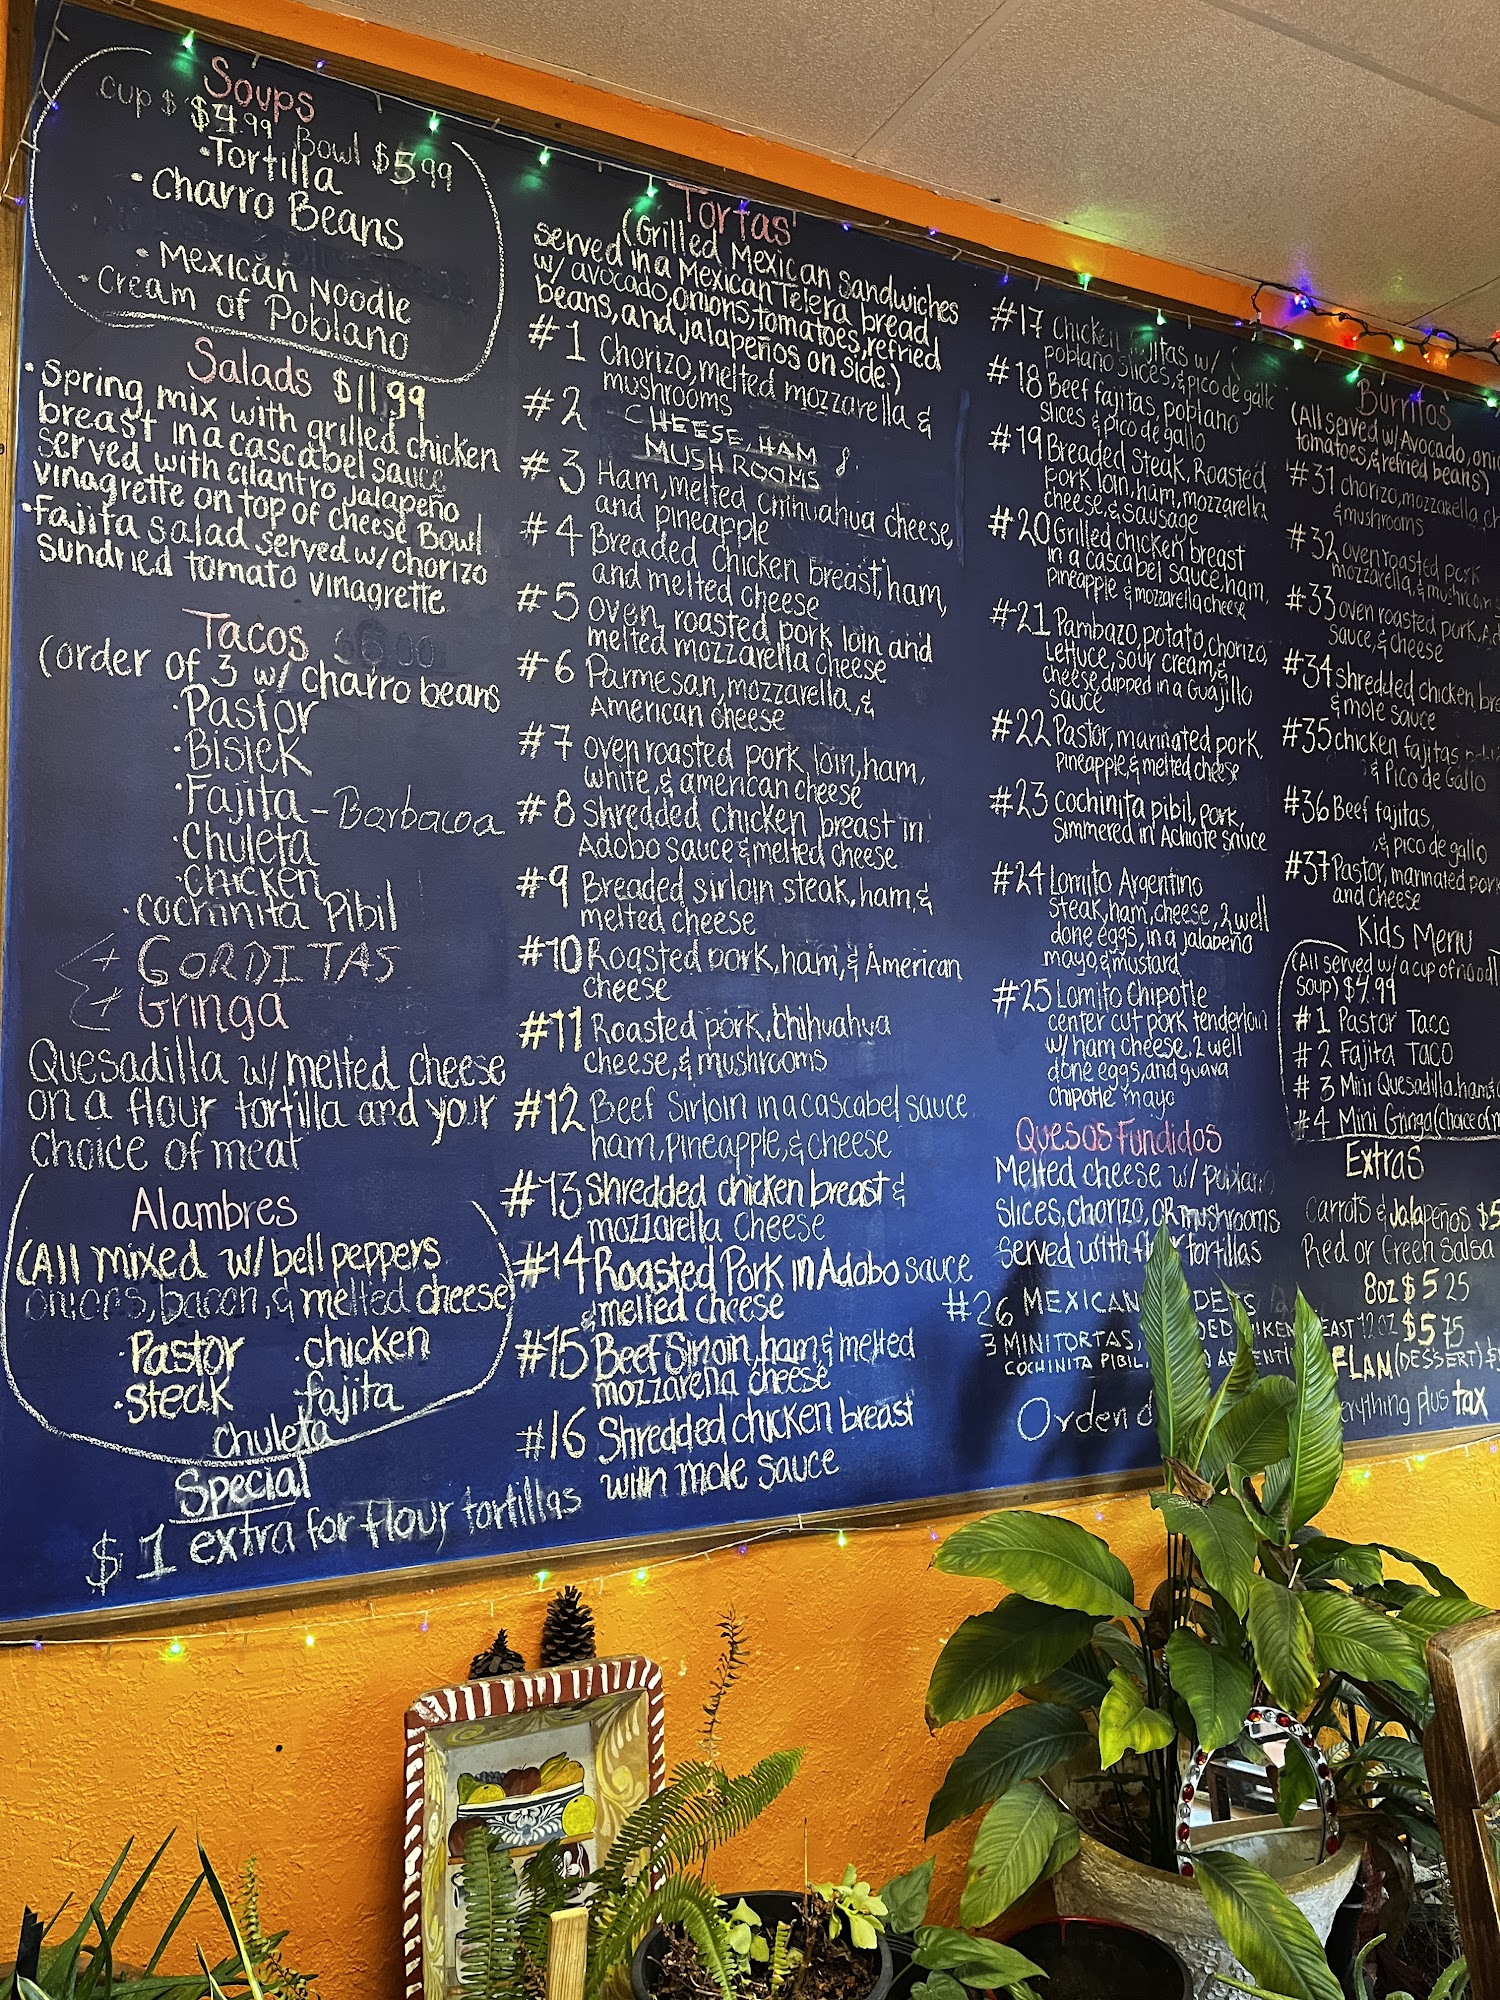 Soups
Cup $ $4.99 Bowl $5.99
• Tortilla
• Charro Beans
• Mexican Noodle
• Cream of Poblano
Salads $11.99
• Spring mix with grilled chicken
breast in a cascabel sauce
served with cilantro jalapeño
vinagrette on top of cheese Bowl
• Fajita salad served w/ chorizo
sundried tomato vinagrette
Tacos
(order of 3 w/ charro beans
• Pastor
• Bistek
• Fajita – Barbacoa
• Chuleta
• chicken
• cochinita Pibil
+ GORDITAS
+ Gringa
Quesadilla w/ melted cheese
on a flour tortilla and your
choice of meat
Alambres
(All mixed w/ bell peppers
onions, bacon, & melted cheese)
• Pastor • chicken
• steak • fajita
chuleta
Special
$1 extra for flour tortillas
Tortas
(Grilled Mexican Sandwiches
served in a Mexican Telera bread
w/ avocado, onions, tomatoes, refried
beans, and jalapeños on side.)
#1 Chorizo, melted mozzarella &
mushrooms
#2 CHEESE, HAM &
MUSHROOMS
#3 Ham, melted chihuahua cheese,
and pineapple
#4 Breaded chicken breast, ham,
and melted cheese
#5 oven, roasted pork loin and
melted mozzarella cheese
#6 Parmesan, mozzarella, &
American cheese
#7 oven roasted pork loin, ham,
white, & american cheese
#8 Shredded chicken breast in
Adobo sauce & melted cheese
#9 Breaded sirloin steak, ham, &
melted cheese
#10 Roasted pork, ham, & American
cheese
#11 Roasted pork, Chihuahua
cheese, & mushrooms
#12 Beef Sirloin in a cascabel sauce
ham, pineapple, & cheese
#13 Shredded chicken breast &
mozzarella cheese
#14 Roasted Pork in Adobo sauce
& melted cheese
#15 Beef Sirloin, ham & melted
mozzarella cheese
#16 Shredded chicken breast
with mole sauce
#17 Chicken fajitas w/
poblano slices, & pico de gallo
#18 Beef fajitas, poblano
slices & pico de gallo
#19 Breaded Steak, Roasted
pork loin, ham, mozzarella
cheese, & sausage
#20 Grilled chicken breast
in a cascabel sauce, ham,
pineapple & mozzarella cheese
#21 Pambazo, potato, chorizo,
Lettuce, sour cream, &
cheese, dipped in a Guajillo
sauce
#22 Pastor, marinated pork,
pineapple, & melted cheese
#23 cochinita pibil, pork,
simmered in Achiote sauce
#24 Lomito Argentino
steak, ham, cheese, 2 well
done eggs, in a jalapeño
mayo, & mustard
#25 Lomito Chipotle
center cut pork tenderloin
w/ ham cheese, 2 well
done eggs, and guava
chipotle mayo
Quesos Fundidos
Melted cheese w/ poblano
slices, chorizo, OR mushrooms
served with flour tortillas
#26 MEXICAN
3 MINI TORTAS,
COCHINITA PIBIL,
Orden
Burritos
(All served w/ Avocado,
tomatoes, & refried beans)
#31 chorizo, mozzarella,
& mushrooms
#32 oven roasted pork
mozzarella, & mushrooms
#33 oven roasted pork
sauce, & cheese
#34 shredded chicken
& mole sauce
#35 chicken fajitas,
& Pico de Gallo
#36 Beef fajitas,
, & pico de gallo
#37 Pastor, marinated pork
and cheese
Kids Menu
(All served w/ a cup of
Soup) $4.99
#1 Pastor Taco
#2 Fajita TACO
#3 Mini Quesadilla, ham
#4 Mini Gringa (choice of
Extras
Carrots & Jalapeños $5
Red or Green Salsa
8oz $5 25
12 oz $5 75
FLAN (DESSERT)
plus tax